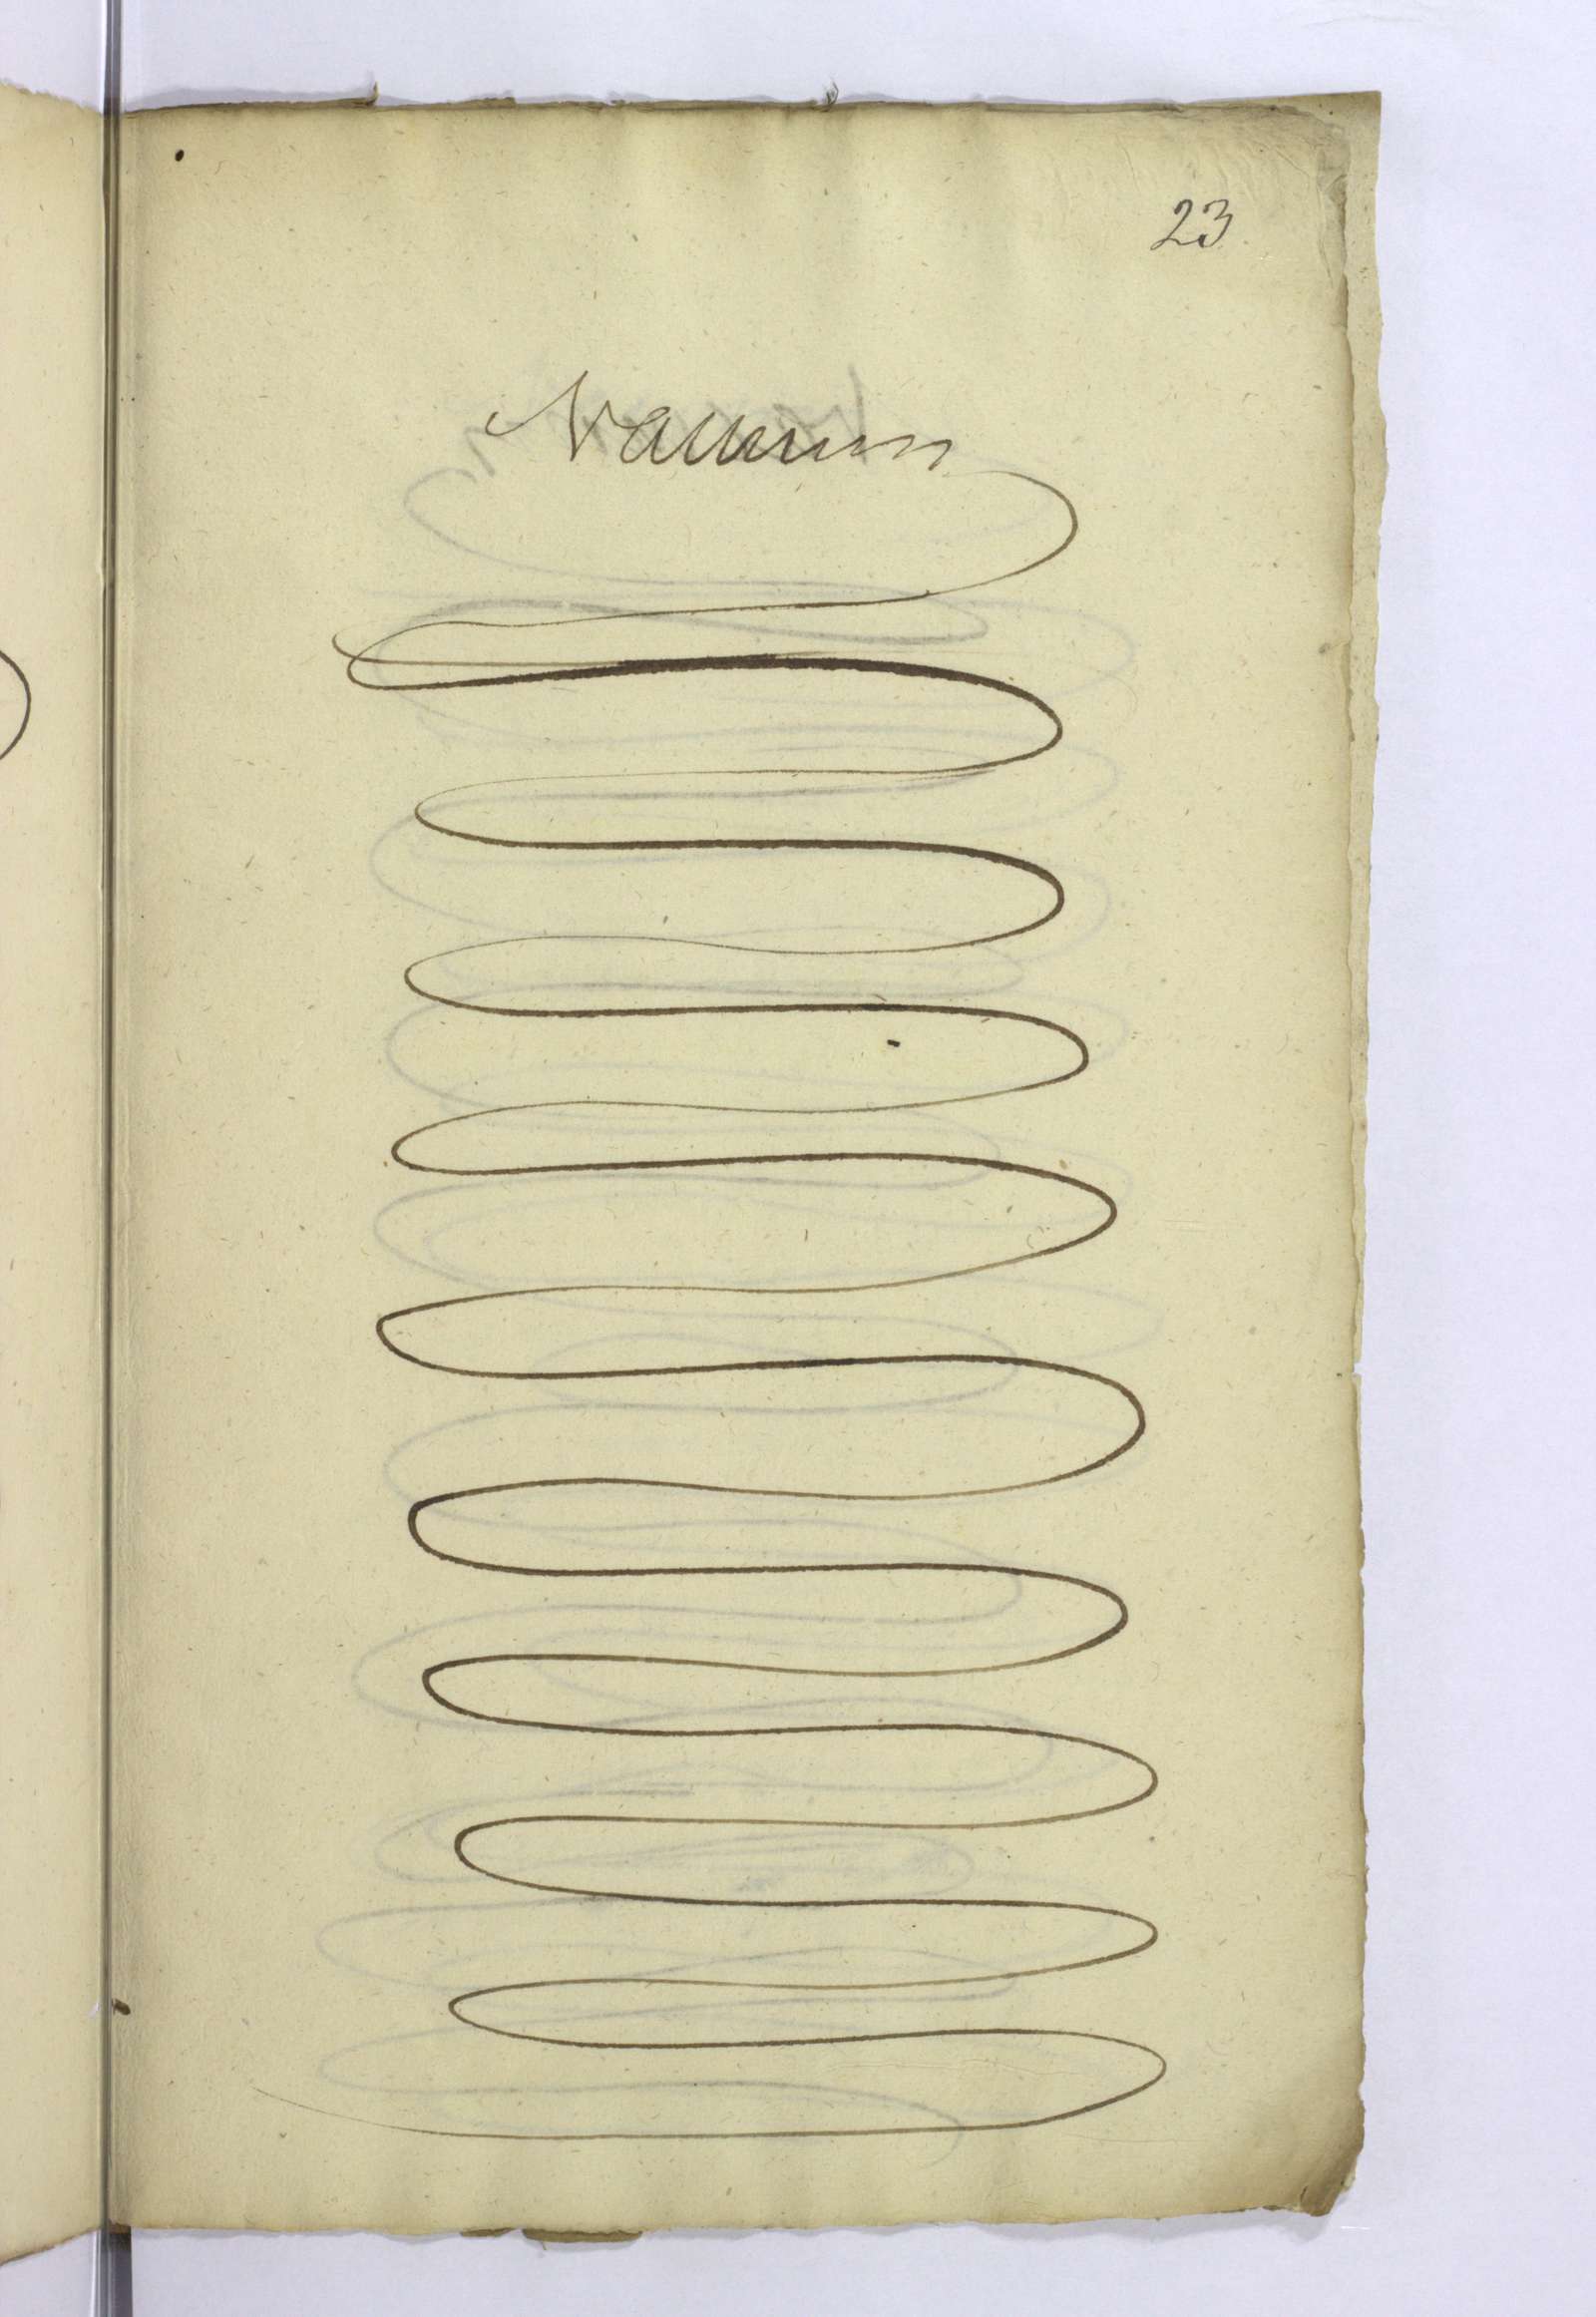 23
Vacuum